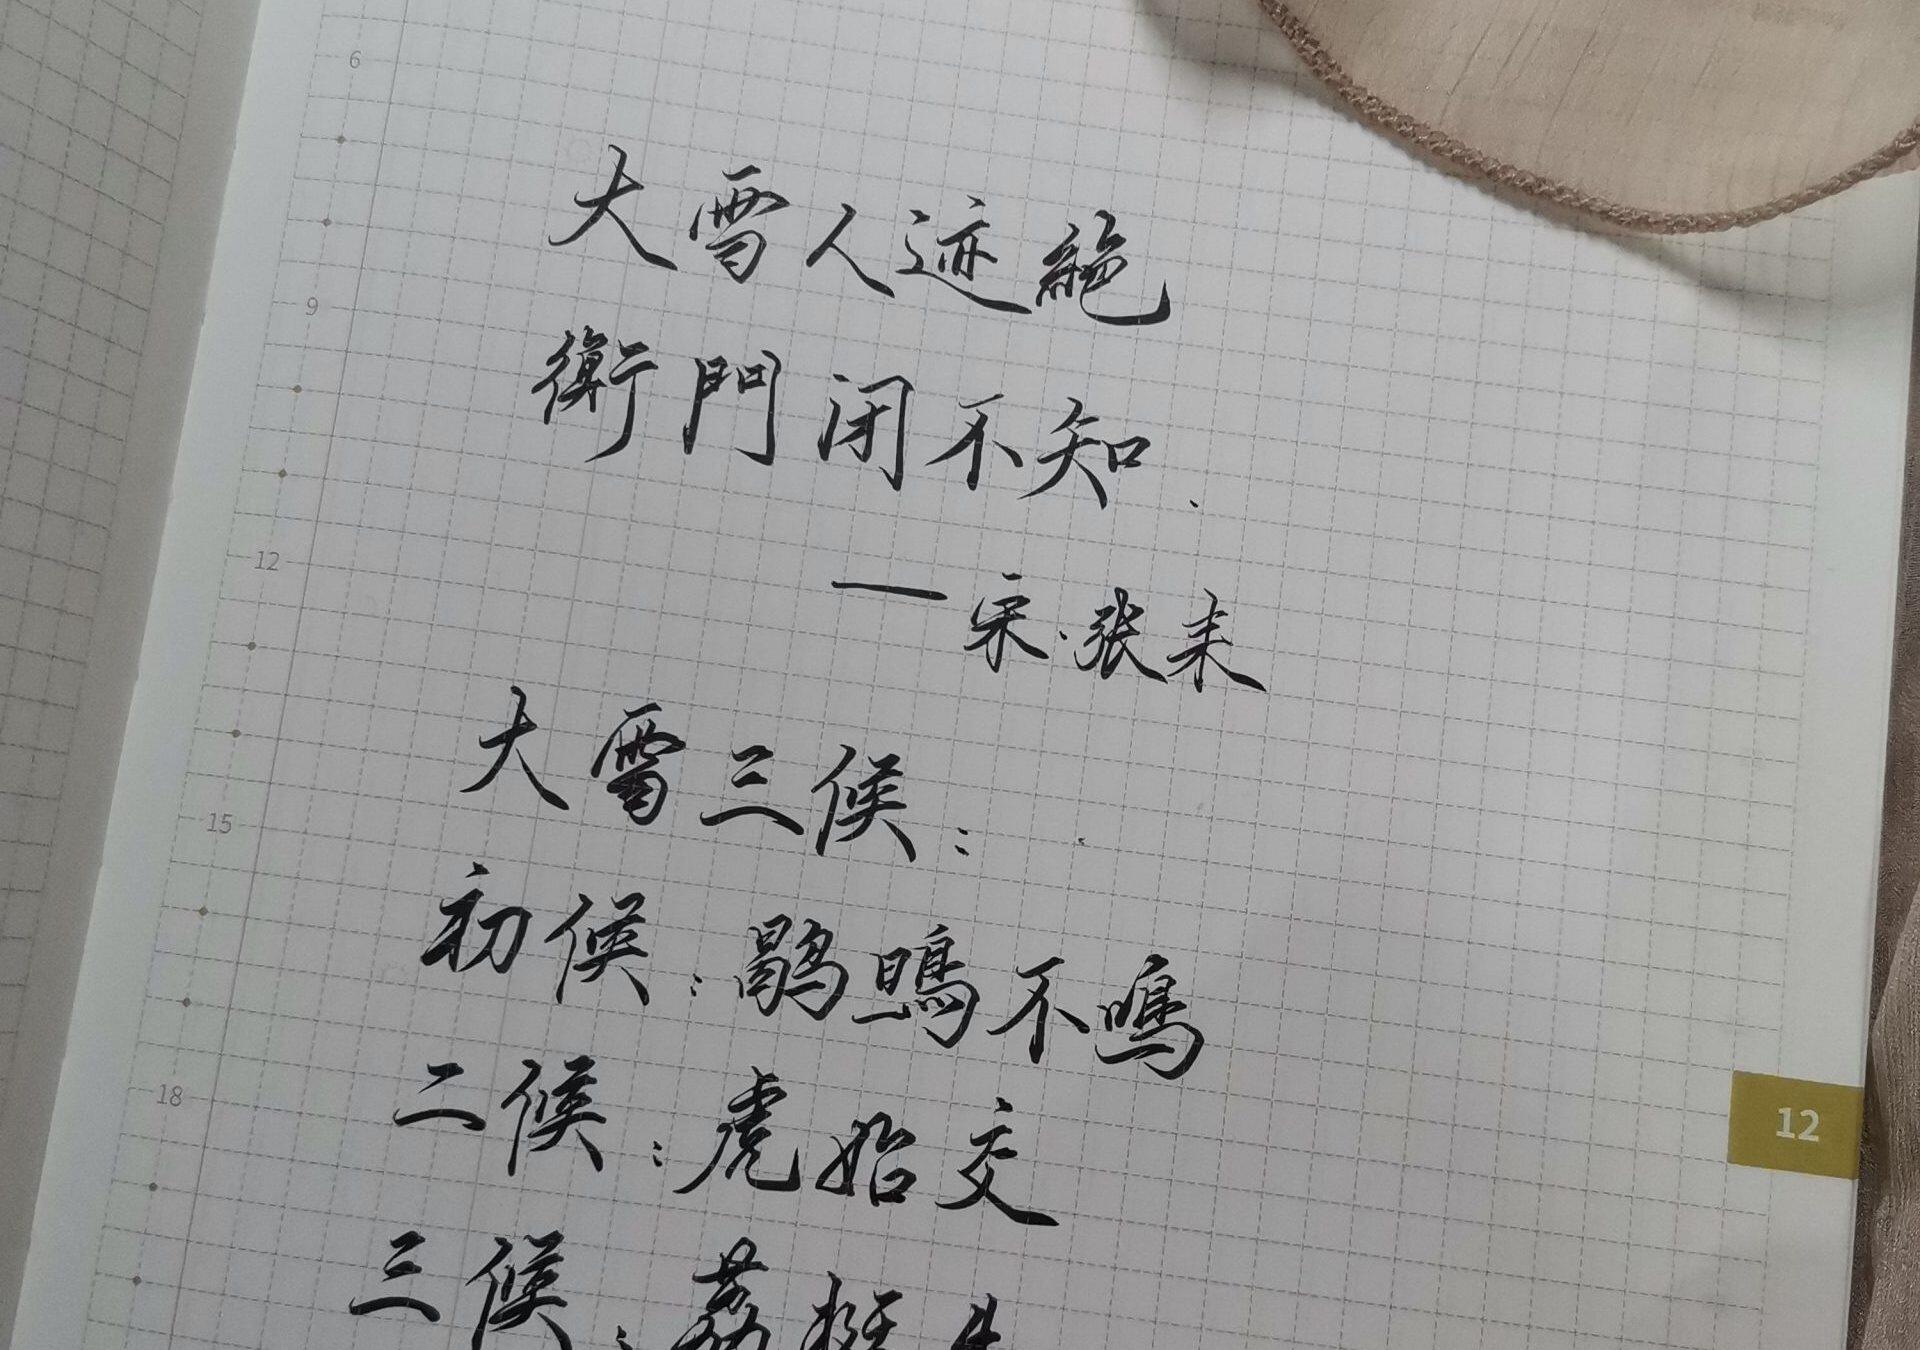 6
大雪人迹絶
9
衡門闭不知.
12
一宋·张耒
大雪三候:
15
初候:鹖鴠不鳴
18
二候:虎始交
12
三候:荔挺生